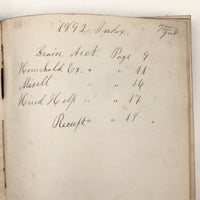 1892. Index.
Grain Acct. Page 9
Household Ex. " " 11
Miscll " " 16
Hired Help " " 17
Receipt " " 18